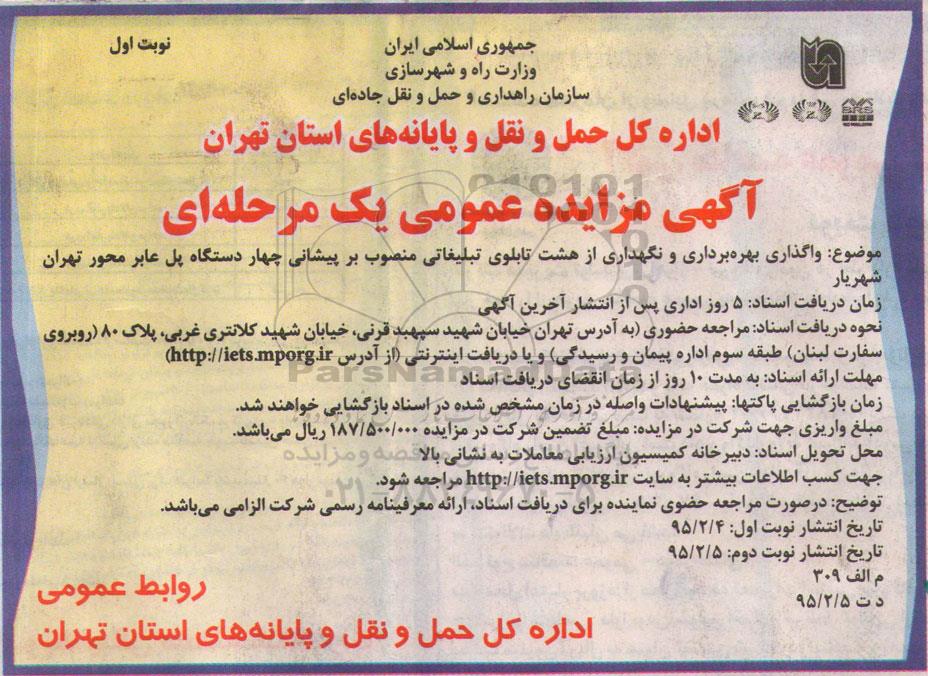 نوبت اول
جمهوری اسلامی ایران
وزارت راه و شهرسازی
سازمان راهداری و حمل و نقل جاده‌ای
اداره کل حمل و نقل و پایانه‌های استان تهران
آگهی مزایده عمومی یک مرحله‌ای
موضوع: واگذاری بهره‌برداری و نگهداری از هشت تابلوی تبلیغاتی منصوب بر پیشانی چهار دستگاه پل عابر محور تهران
شهریار
زمان دریافت اسناد: ۵ روز اداری پس از انتشار آخرین آگهی
نحوه دریافت اسناد: مراجعه حضوری (به آدرس تهران خیابان شهید سپهبد قرنی، خیابان شهید کلانتری غربی، پلاک ۸۰ (روبروی
سفارت لبنان) طبقه سوم اداره پیمان و رسیدگی) و یا دریافت اینترنتی (از آدرس http://iets.mporg.ir)
مهلت ارائه اسناد: به مدت ۱۰ روز از زمان انقضای دریافت اسناد
زمان بازگشایی پاکتها: پیشنهادات واصله در زمان مشخص شده در اسناد بازگشایی خواهند شد.
مبلغ واریزی جهت شرکت در مزایده: مبلغ تضمین شرکت در مزایده ۱۸۷/۵۰۰/۰۰۰ ریال می‌باشد.
محل تحویل اسناد: دبیرخانه کمیسیون ارزیابی معاملات به نشانی بالا
جهت کسب اطلاعات بیشتر به سایت http://iets.mporg.ir مراجعه شود.
توضیح: درصورت مراجعه حضوی نماینده برای دریافت اسناد، ارائه معرفینامه رسمی شرکت الزامی می‌باشد.
تاریخ انتشار نوبت اول: ۹۵/۲/۴
تاریخ انتشار نوبت دوم: ۹۵/۲/۵
م الف ۳۰۹
د ت ۹۵/۲/۵
روابط عمومی
اداره کل حمل و نقل و پایانه‌های استان تهران
ParsNamadData